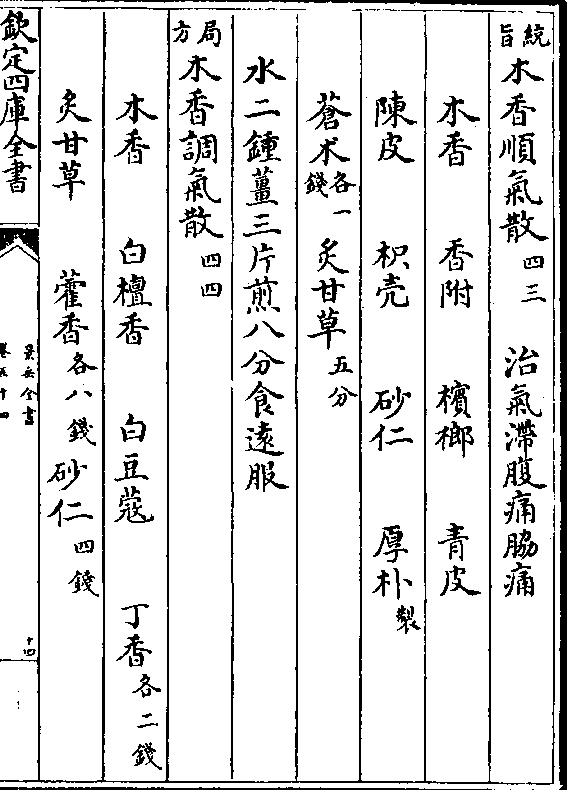 統旨木香順氣散四三　治氣滯腹痛脇痛
木香　香附　檳榔　青皮
陳皮　枳壳　砂仁　厚朴製
蒼朮各一錢　炙甘草五分
水二鍾薑三片煎八分食遠服
局方木香調氣散四四
木香　白檀香　白豆蔻　丁香各二錢
炙甘草　藿香各八錢　砂仁四錢
欽定四庫全書
景岳全書
卷五十四
十四